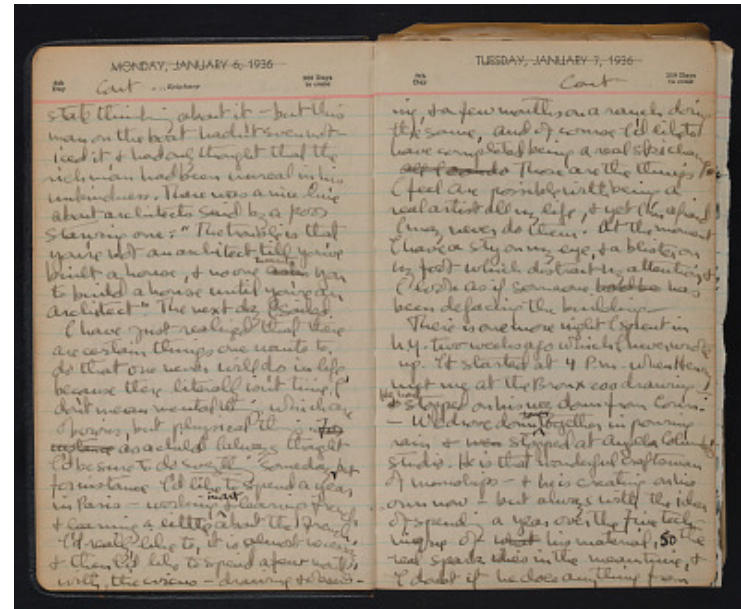 MONDAY, JANUARY 6, 1936
6th Day
360 Days to come
Cont ... Epiphany
thinking about it - but this
man on the boat hadn't even not-
iced it & had only thought that the
rich man had been unreal in his
unkindness. There was a nice line
about architects said by a poor
starving one: "The trouble is that
you're not an architect till you've
built a house, & no one wants you
to build a house until you're an
architect". The next day
I have just realized that there
are certain things one wants to
do that one never will do in life
because there literally isn't time. I
don't mean mentally which are
but physically
as a child I always thought
I'd be sure to do "someday", but
for instance I'd like to spend a year
in Paris - working & learning
& learning a little about the French.
I'd really like to, it is almost
& then I'd like to spend a few months
with the circus - drawing &
TUESDAY, JANUARY 7, 1936
7th Day
359 Days to come
Cont
ing, & a few months on a ranch doing
the same, and of course I'd like to
have completed being a real
Those are the things
I feel are possible with being a
real artist all my life, & yet I'm afraid
I may never do them. At the moment
I have a sty on my eye, & a blister on
my foot which distract my attention &
I look as if someone has
been defacing the building -
There is one more night I spent in
N.Y. two weeks ago which I never wrote
up. It started at 4 P.m. when Henry
met me at the Bronx zoo drawing
stopped on his way down from Conn.
- We drove down together in pouring
rain & stopped at
studio. He is that wonderful craftsman
of - & he is creating on his
own now - but always with the idea
of spending a year over the fine tech-
nique of his material, so the
real spark dies in the meantime, &
I doubt if he does anything from